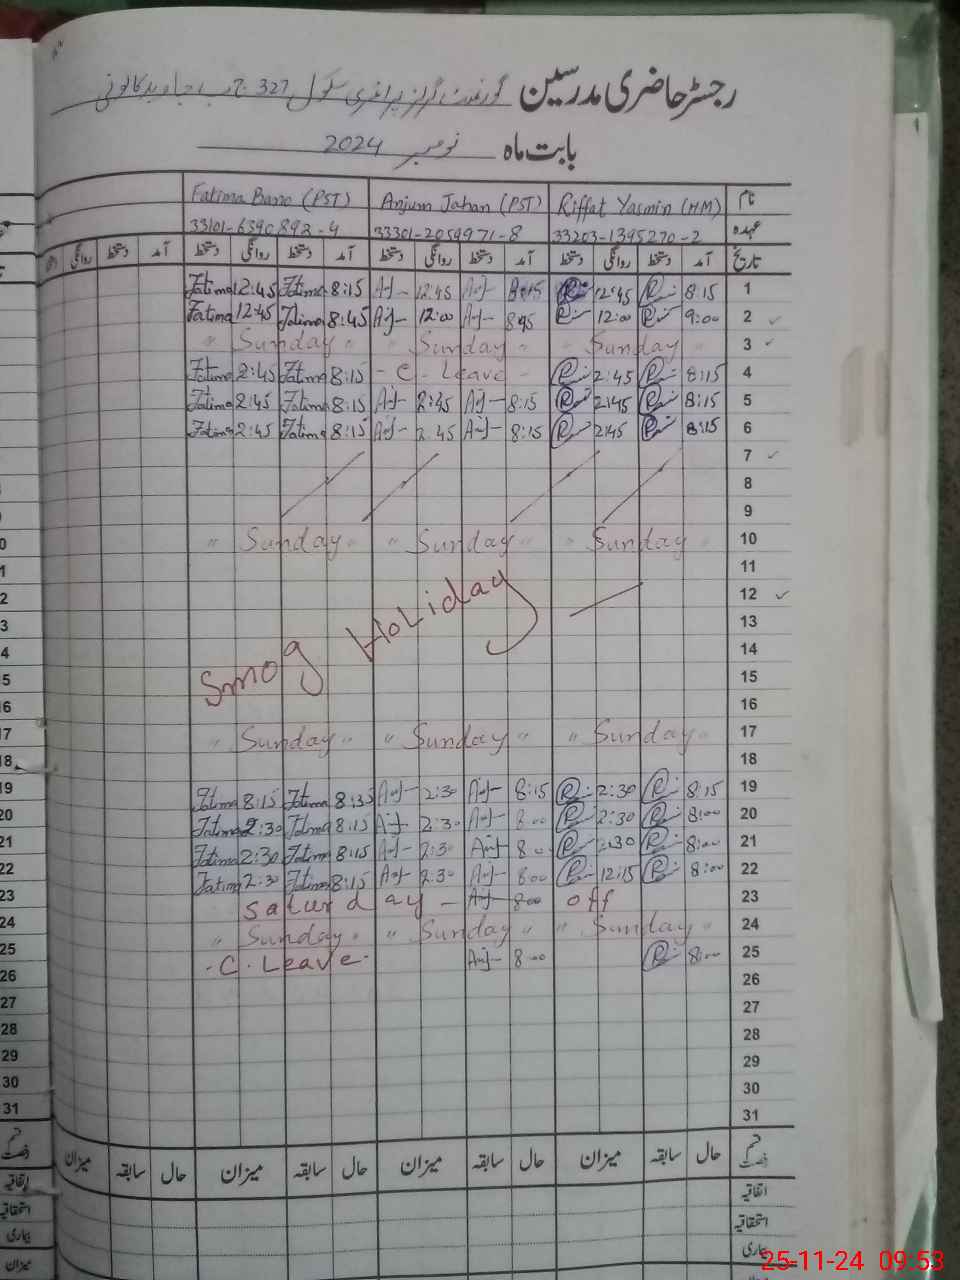 رجسٹر حاضری مدرسین گورنمنٹ گرلز پرائمری سکول 327 ج ب جاوید کالونی
بابت ماہ نومبر 2024
نام Riffat Yasmin (HM) Anjum Jahan (PST) Fatima Bano (PST)
عہدہ 33203-1395270-2 33301-2059971-8 33101-6390892-4
تاریخ آمد دستخط روانگی دستخط آمد دستخط روانگی دستخط آمد دستخط روانگی دستخط آمد دستخط روانگی
Fatima 12:45 Fatima 8:15 Anj 12:45 Anj 8:15 R 12:45 R 8:15 1
Fatima 12:45 Fatima 8:45 Anj 12:00 Anj 8:45 R 12:00 R 9:00 2
" Sunday " " Sunday " " Sunday " 3
Fatima 2:45 Fatima 8:15 - C. Leave - R 2:45 R 8:15 4
Fatima 2:45 Fatima 8:15 Anj 2:45 Anj 8:15 R 2:45 R 8:15 5
Fatima 2:45 Fatima 8:15 Anj 2:45 Anj 8:15 R 2:45 R 8:15 6
7
8
9
" Sunday " " Sunday " " Sunday " 10
11
12
13
Smog Holiday 14
15
16
" Sunday " " Sunday " " Sunday " 17
18
Fatima 8:15 Fatima 8:35 Anj 2:30 Anj 8:15 R 2:30 R 8:15 19
Fatima 2:30 Fatima 8:15 Anj 2:30 Anj 8:00 R 2:30 R 8:00 20
Fatima 2:30 Fatima 8:15 Anj 2:30 Anj 8:00 R 2:30 R 8:00 21
Fatima 2:30 Fatima 8:15 Anj 2:30 Anj 8:00 R 12:15 R 8:00 22
Saturday - Anj 8:00 off 23
" Sunday " " Sunday " " Sunday " 24
- C. Leave - Anj 8:00 R 8:00 25
26
27
28
29
30
31
قسم رخصت حال سابقہ میزان حال سابقہ میزان حال سابقہ میزان حال سابقہ میزان
اتفاقیہ
استحقاقیہ
بیماری
25-11-24 09:53